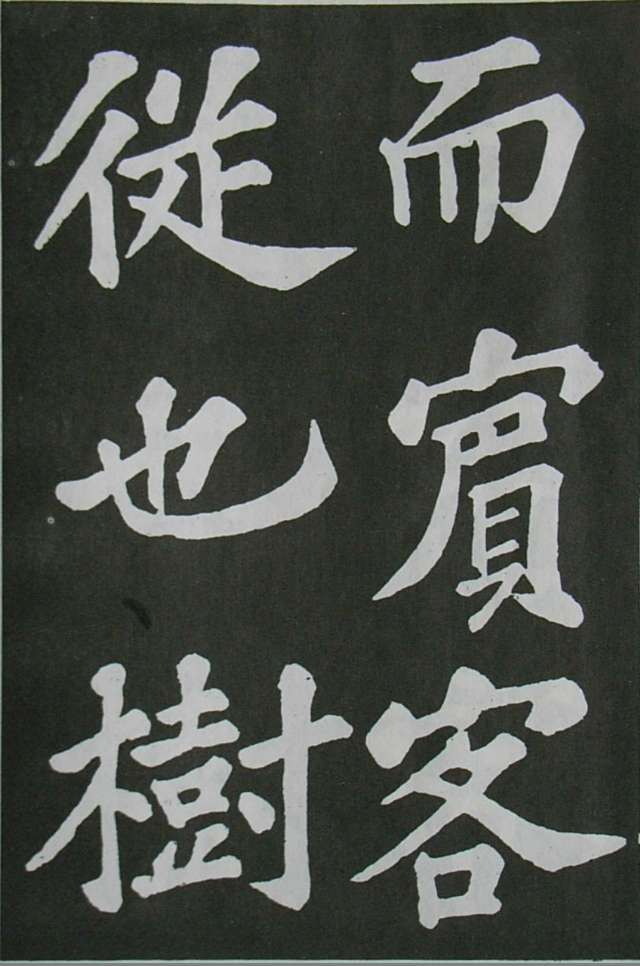 而賔客
從也樹